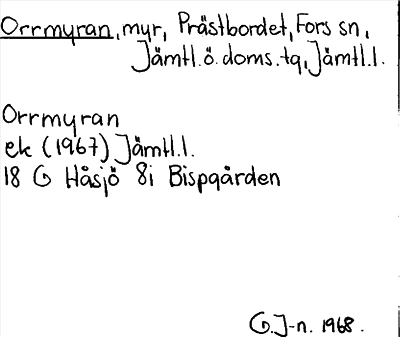 Orrmyran, myr, Prästbordet, Fors sn,
Jämtl.ö.doms.tg, Jämtl.l.
Orrmyran
ek (1967) Jämtl.l.
18 G Håsjö 8i Bispgården
G.J-n. 1968.